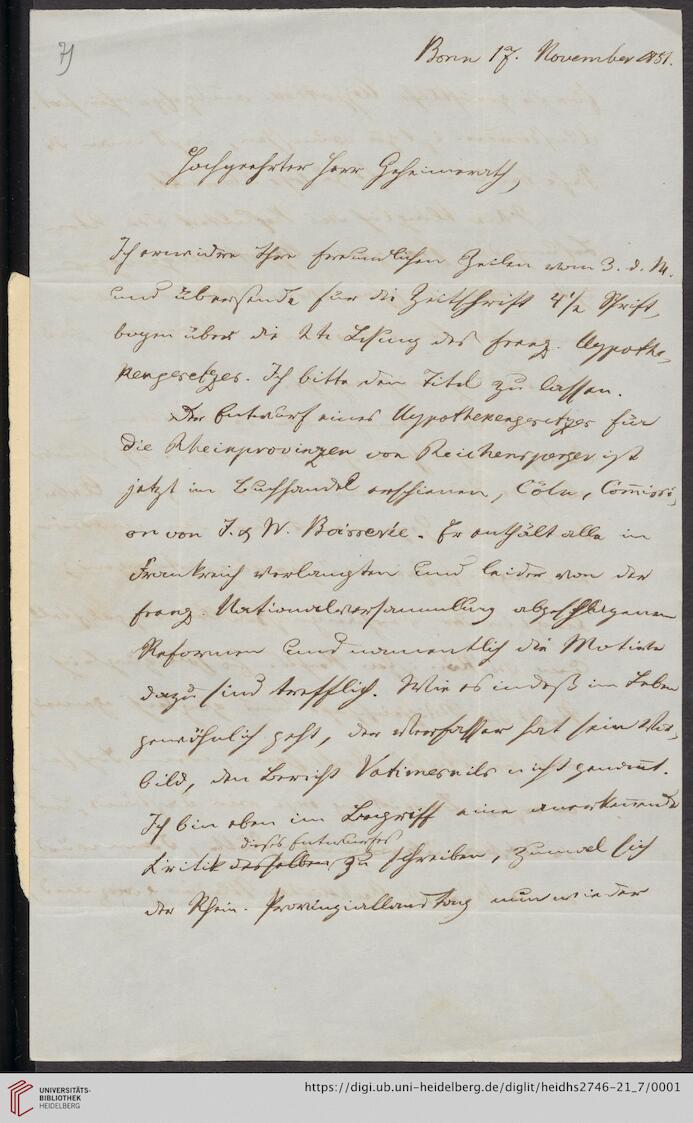 7)
Bonn 17. November 1851.
Hochgeehrter Herr Geheimerath,
Ich erwidre Ihre freundlichen Zeilen vom 3. d. M.
und übersende für die Zeitschrift 4 1/2 Schrift-
bogen über die 2te Lesung des franz. Hypothe-
kengesetzes. Ich bitte den Titel zu lassen.
Der Entwurf eines Hypothekengesetzes für
die Rheinprovinzen von Reichensperger ist
jetzt im Buchhandel erschienen, Cöln, Com̅issi-
on von J. & W. Boisserée. Er enthält alle in
Frankreich verlangten und leider von der
franz. Nationalversammlung abgeschlagenen
Reformen und namentlich die Motive
dazu sind trefflich. Wie es indeß im Leben
gewöhnlich geht, der Verfasser hat sein Vor-
bild, den Bericht Vatimesnils nicht genan̅t.
Ich bin eben im Begriff eine anerken̅ende
dieses Entwurfes
Kritik desselben zu schreiben, zumal sich
der Rhein. Provinziallandtag nun wieder
UNIVERSITÄTS-
BIBLIOTHEK
HEIDELBERG
https://digi.ub.uni-heidelberg.de/diglit/heidhs2746-21_7/0001